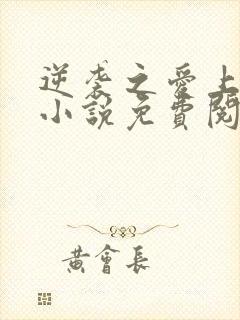 逆袭之愛上
小說免費閱
黃會長